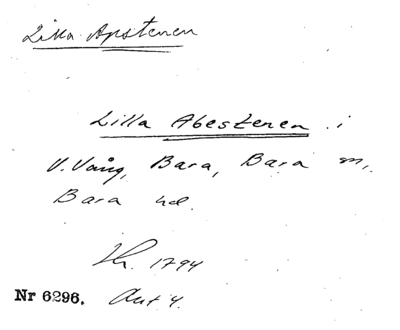 Lilla Apstenen
Lilla Abestenen i
V. Vång, Bara, Bara sn,
Bara hd.
1794
Nr 6296. Ant 4.